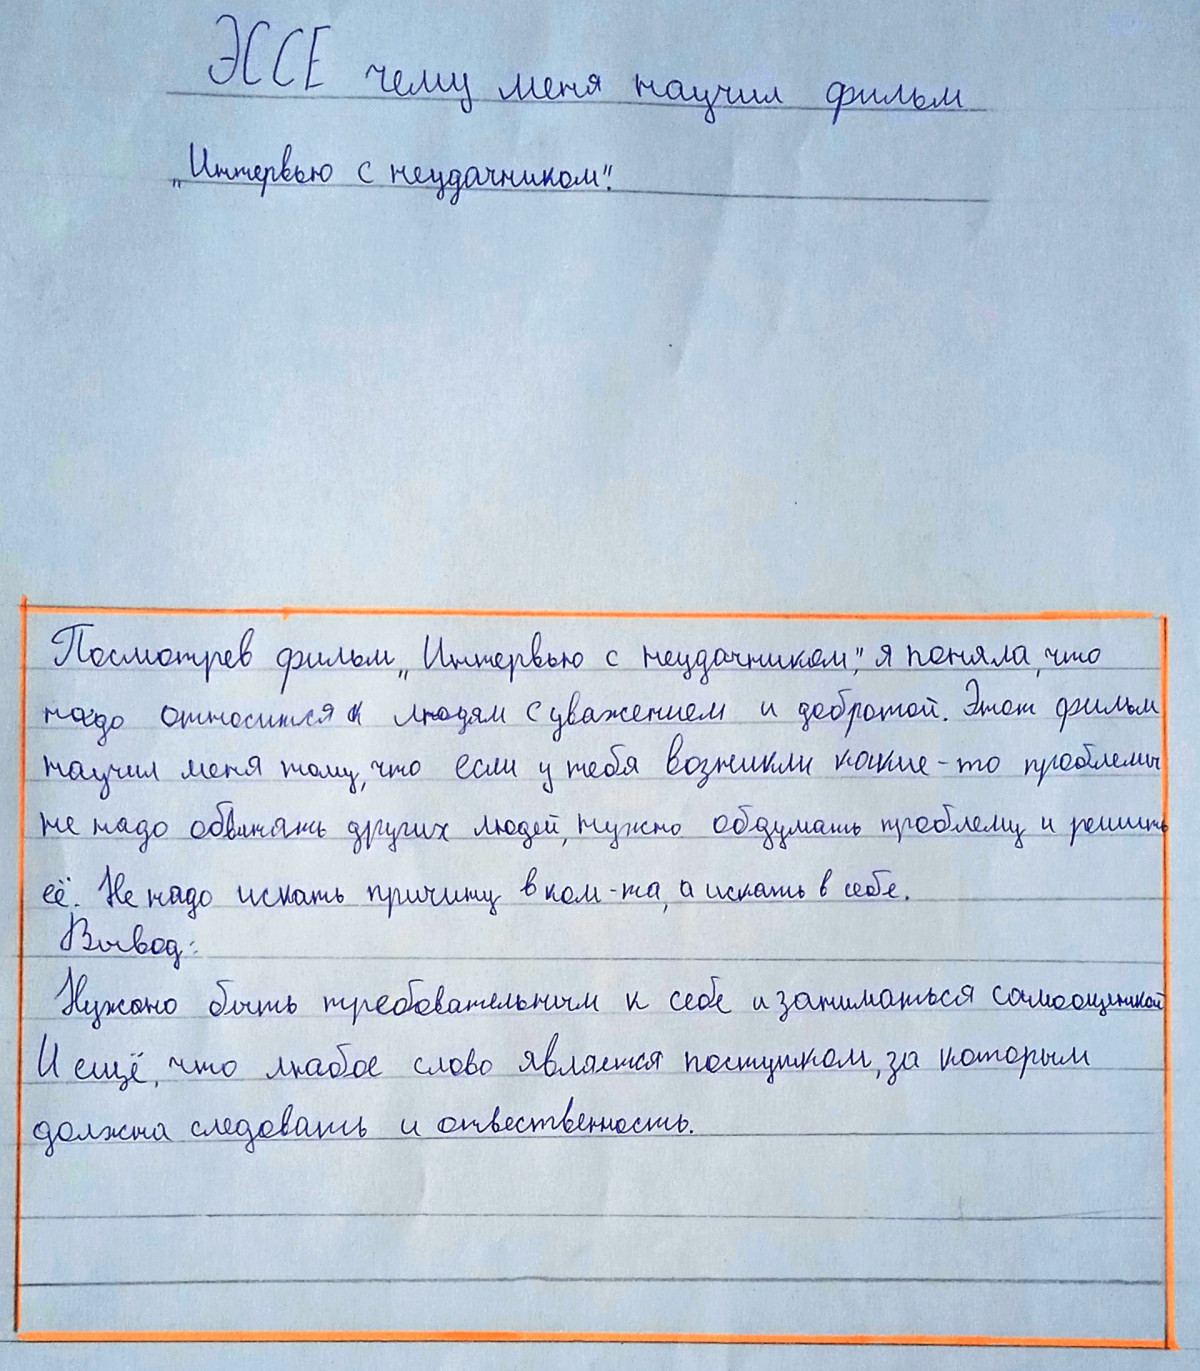 ЭССЕ чему меня научил фильм
„Интервью с неудачником".
Посмотрев фильм „Интервью с неудачником", я поняла, что
надо относится к людям с уважением и добротой. Этот фильм
научил меня тому, что если у тебя возникли какие-то проблемы
не надо обвинять других людей, нужно обдумать проблему и решить
её. Не надо искать причину в ком-та, а искать в себе.
Вывод:
Нужоно быть требовательным к себе и заниматься самооценкой
И ещё, что любое слово является поступком, за которым
должна следовать и отвественность.